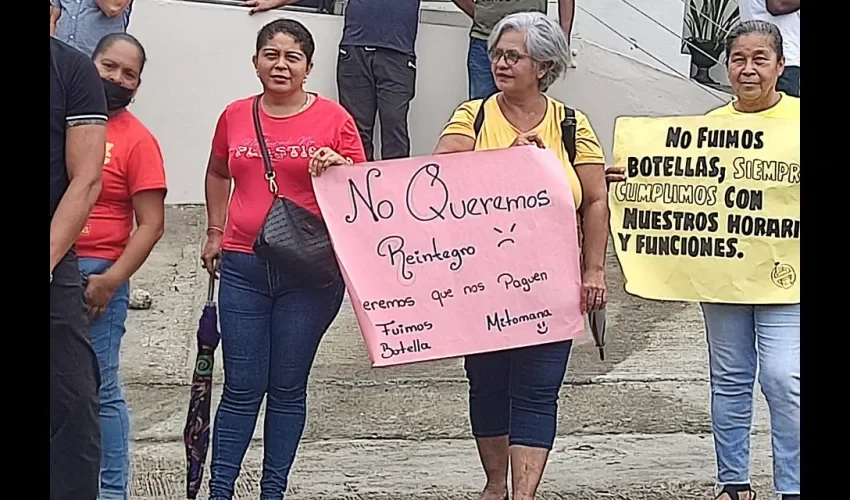 No Queremos
Reintegro
eremos que nos Paguen
Fuimos Mitomana
Botella
No fuimos
Botellas, siempre
cumplimos con
Nuestros horari
y funciones.